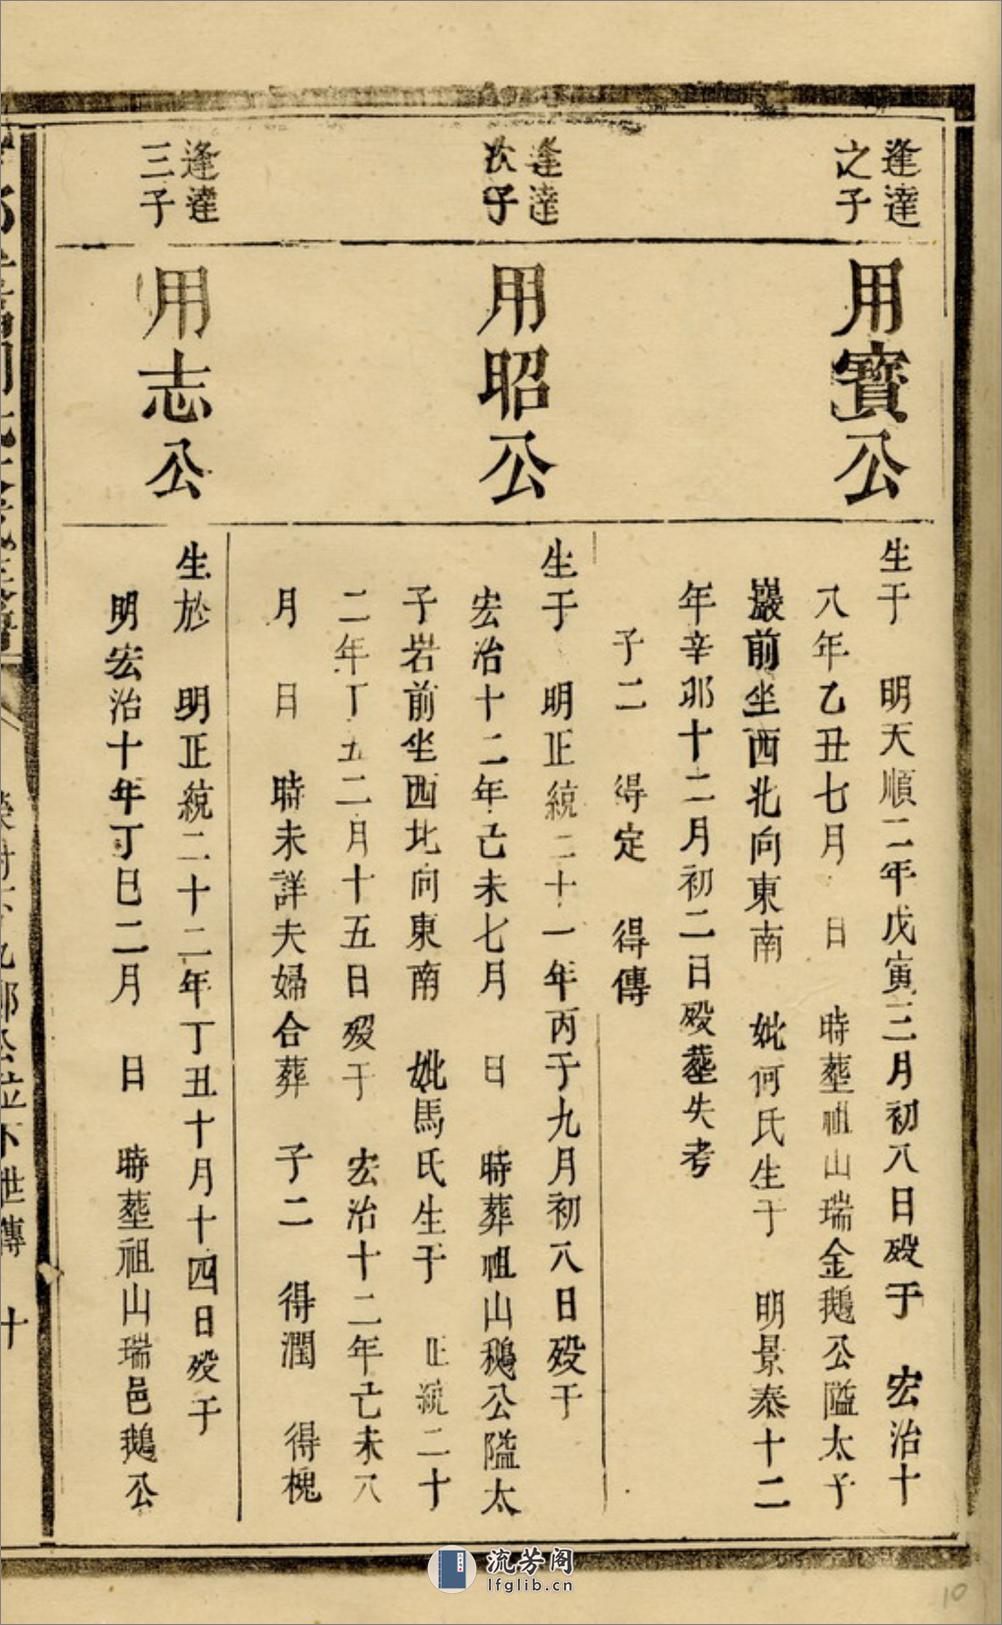 逢達
之子
用寳公
生于　明天順二年戊寅三月初八日殁于　宏治十
八年乙丑七月　日　時塟祖山瑞金鵝公隘太子
巖前坐西北向東南　妣何氏生于　明景泰十二
年辛邜十二月初二日殁塟失考
子二　得定　得傳
逢達
次子
用昭公
生于　明正統二十一年丙子九月初八日殁于
宏治十二年己未七月　日　時葬祖山鵝公隘太
子岩前坐西北向東南　妣馬氏生于　正統二十
二年丁丑二月十五日殁于　宏治十二年己未八
月　日　時未詳夫婦合葬　子二　得潤　得槐
逢達
三子
用志公
生於　明正統二十二年丁丑十月十四日殁于
明宏治十年丁巳二月　日　時塟祖山瑞邑鵝公
郎公位下世傳　十
流芳阁
lfglib.cn
10